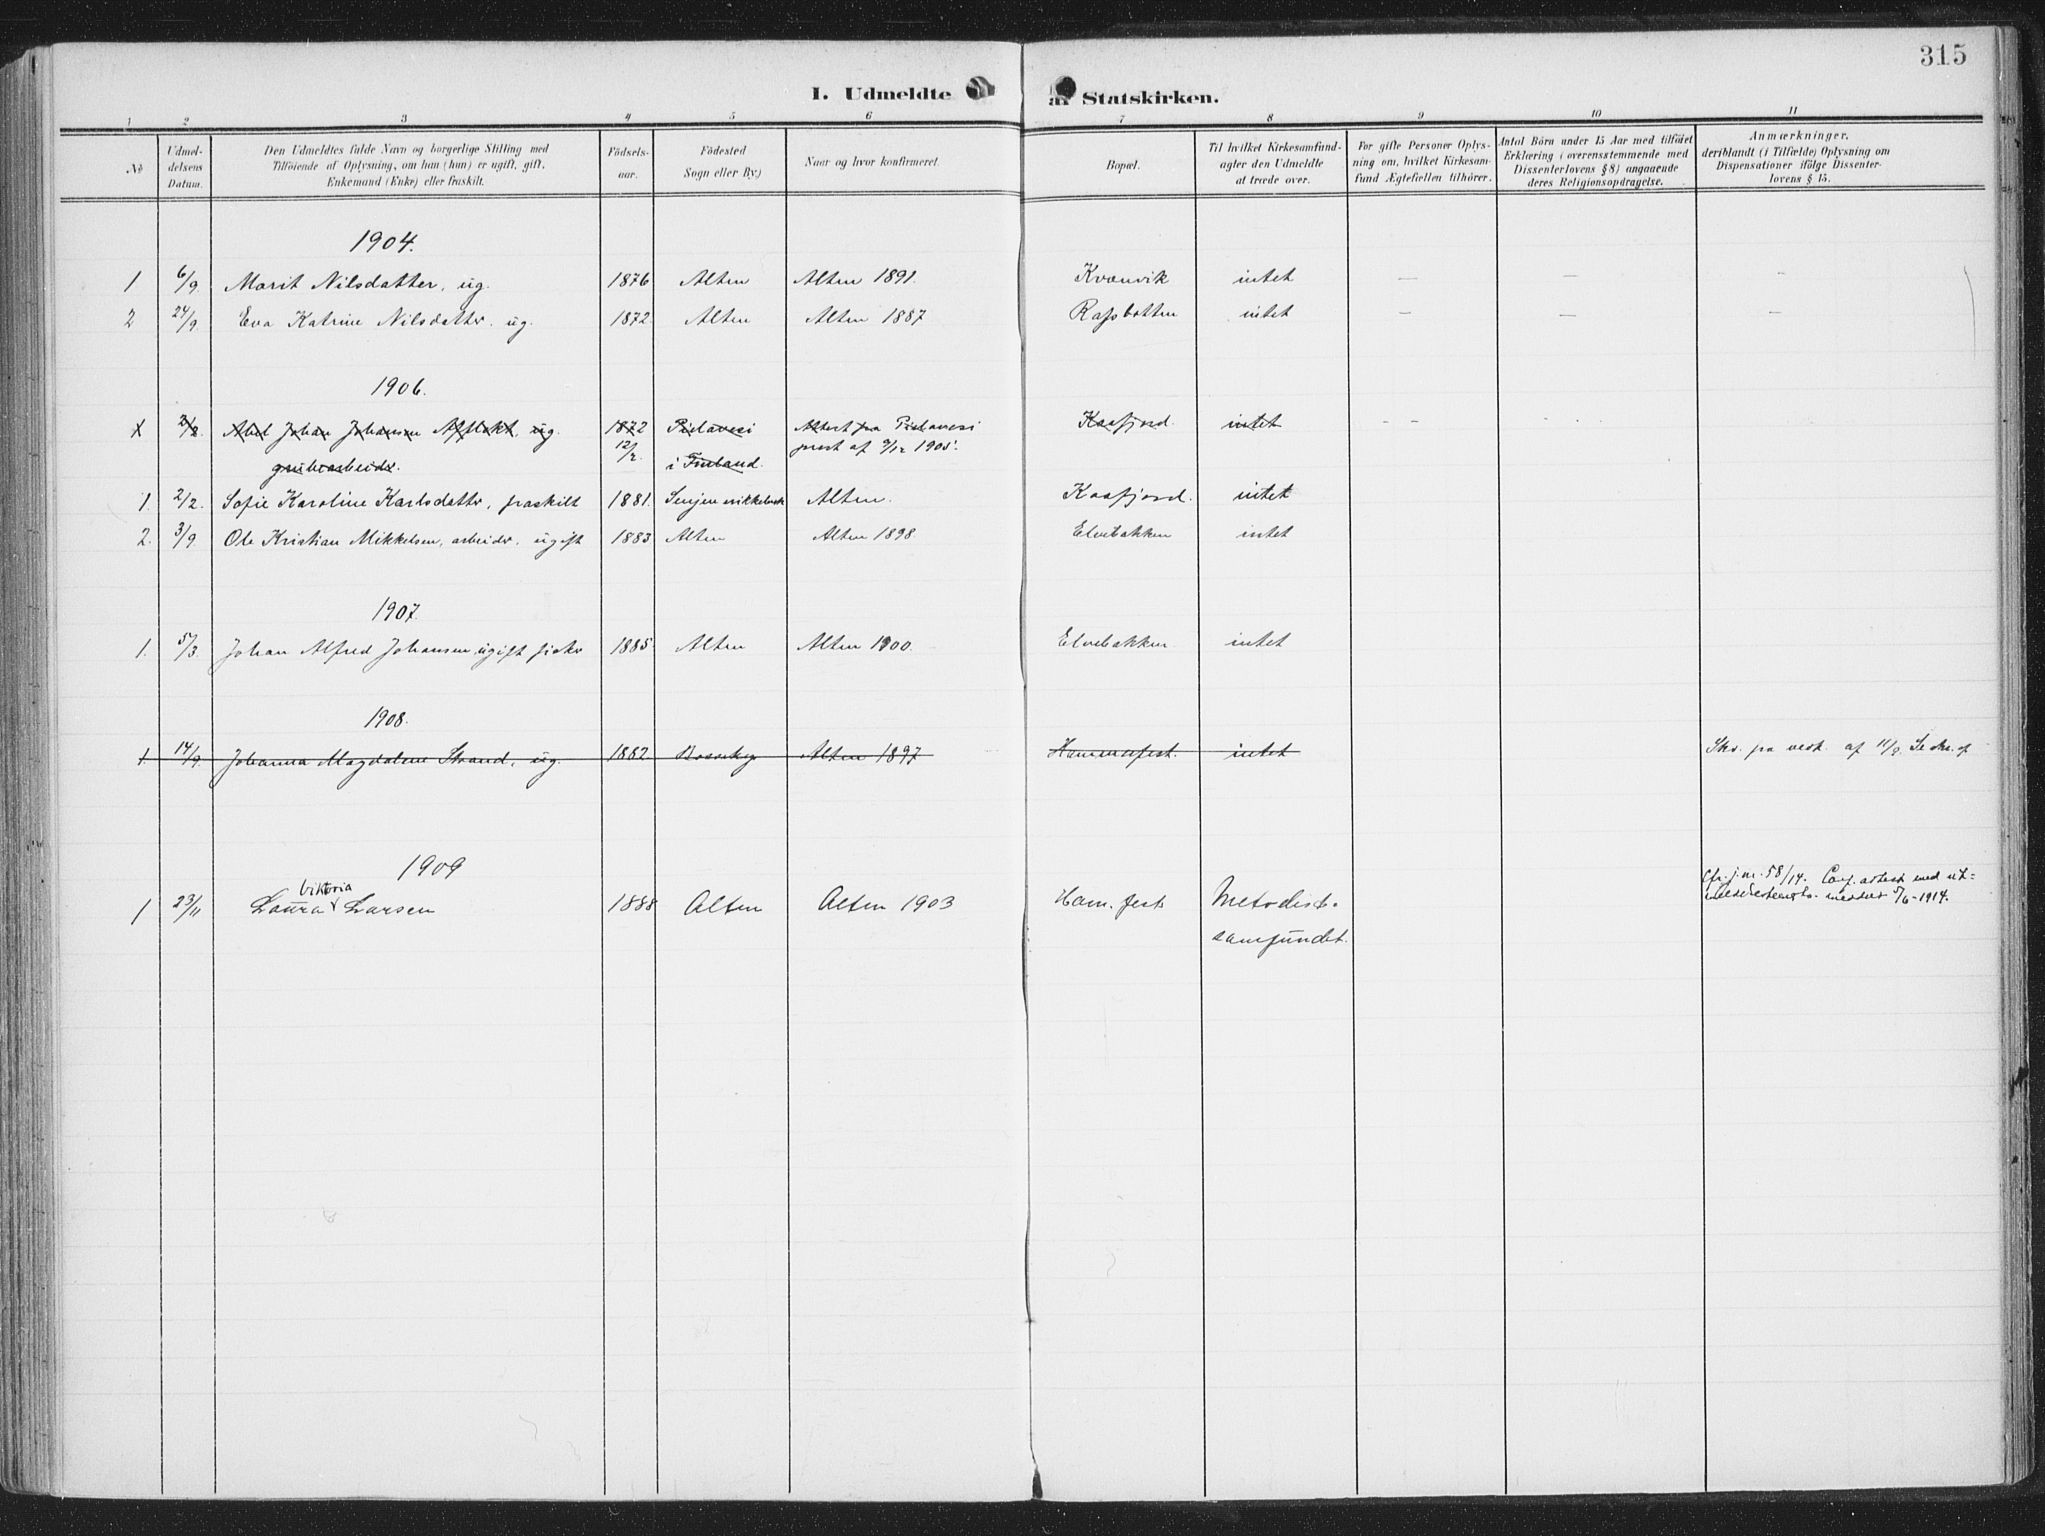 315
I. Udmeldte af Statskirken.
1 2 3 4 5 6 7 8 9 10 11
№
Udmel-
delsens
Datum.
Den Udmeldtes fulde Navn og borgerlige Stilling med
Tilföiende af Oplysning, om han (hun) er ugift, gift,
Enkemand (Enke) eller fraskilt.
Födsels-
aar.
Födested
Sogn eller By.)
Naar og hvor konfirmeret.
Bopæl.
Til hvilket Kirkesamfund
agter den Udmeldte
at træde over.
For gifte Personer Oplys-
ning om, hvilket Kirkesam-
fund Ægtefællen tilhörer.
Antal Börn under 15 Aar med tilföiet
Erklæring (i overensstemmende med
Dissenterlovens § 8) angaaende
deres Religionsopdragelse.
Anmærkninger,
deriblandt (i Tilfælde) Oplysning om
Dispensationer ifölge Dissenter-
lovens § 15.
1904.
1 6/9 Marit Nilsdatter, ug. 1876 Alten Alten 1891. Kvænvik intet — — -
2 24/9 Eva Katrine Nilsdatter. ug. 1872. Alten Alten 1887 Rafsbotten intet — — —
1906.
2/2 Abel Johan Johansen ug. 1872 Pielavesi Attest fra Pielavesi Kaafjord. intet - -
grubearbeider. 12/2. i Finland. prest af 9/12 1905.
1. 2/2. Sofie Karoline Karlsdatter, fraskilt 1881. Senjen Alten. Kaafjord. intet
2. 3/9 Ole Kristian Mikkelsen, arbeider, ugift 1883 Alten Alten 1898. Elvebakken intet
1907.
1. 5/3 Johan Alfred Johansen, ugift fisker 1885 Alten Alten 1900. Elvebakken intet
1908.
1. 14/9 Johanna Magdalene Strand, ug. 1882. Bossekop Alten 1897 Hammerfest. intet Skr. fra vedk. af 11/9. Se skr. af
1909
Viktoria
1 23/11 Laura Larsen 1888 Alten Alten 1903 Ham.fest Metodist-
samfundet.
Cfr. j.nr. 58/14. Conf. attest med ut-
meddelt 5/6-1914.